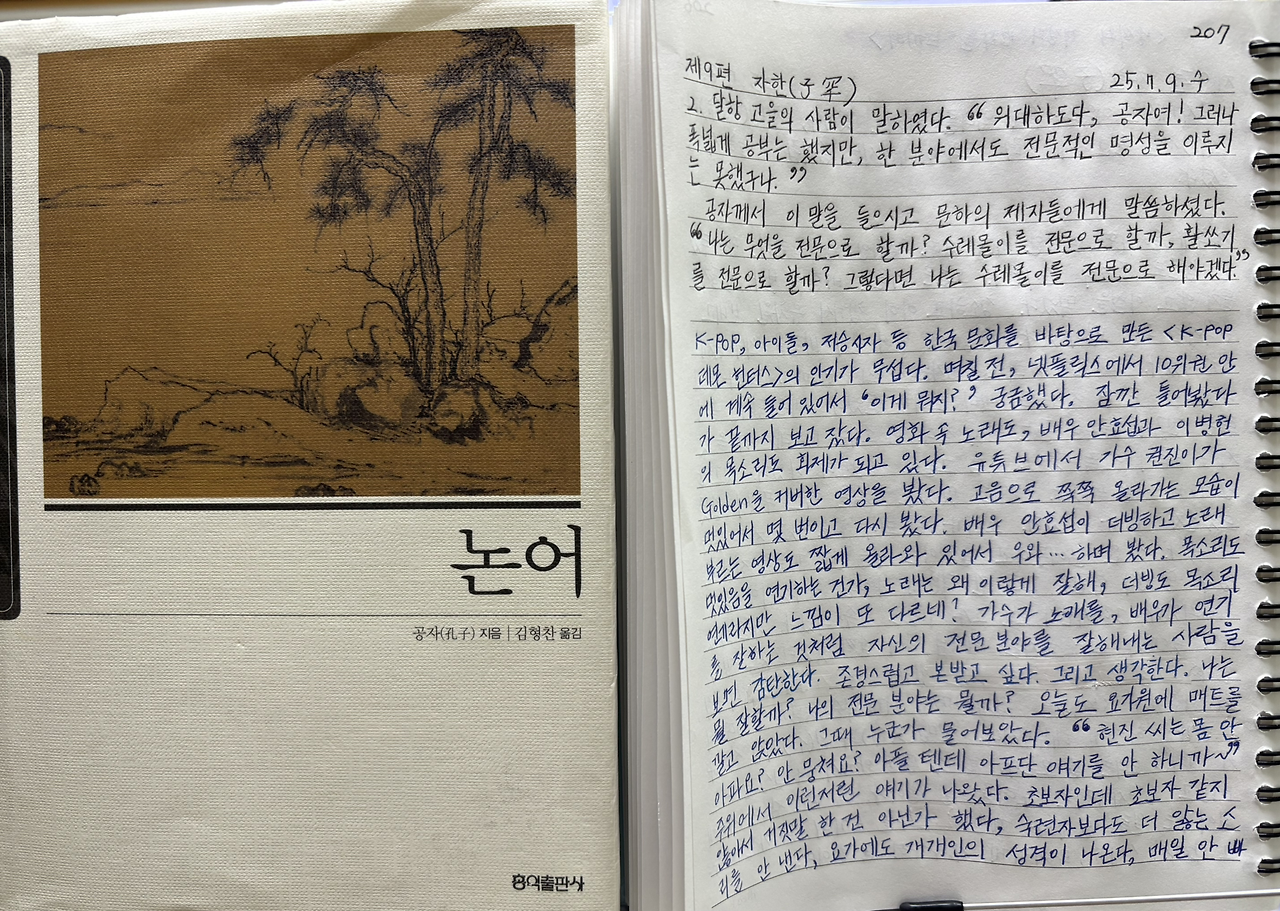 논어
공자(孔子) 지음 | 김형찬 옮김
홍익출판사
207
제9편 자한(子罕) 25.7.9.수
2. 달항 고을의 사람이 말하였다. "위대하도다, 공자여! 그러나
폭넓게 공부는 했지만, 한 분야에서도 전문적인 명성을 이루지
는 못했구나."
공자께서 이 말을 들으시고 문하의 제자들에게 말씀하셨다.
"나는 무엇을 전문으로 할까? 수레몰이를 전문으로 할까, 활쏘기
를 전문으로 할까? 그렇다면 나는 수레몰이를 전문으로 해야겠다."
K-POP, 아이돌, 저승사자 등 한국 문화를 바탕으로 만든 <K-POP
데몬 헌터스>의 인기가 무섭다. 며칠 전, 넷플릭스에서 10위권 안
에 계속 들어 있어서 '이게 뭐지?' 궁금했다. 잠깐 틀어봤다
가 끝까지 보고 잤다. 영화 속 노래도, 배우 안효섭과 이병헌
의 목소리도 화제가 되고 있다. 유튜브에서 가수 권진아가
Golden을 커버한 영상을 봤다. 고음으로 쭉쭉 올라가는 모습이
멋있어서 몇 번이고 다시 봤다. 배우 안효섭이 더빙하고 노래
부르는 영상도 짧게 올라와 있어서 우와... 하며 봤다. 목소리도
멋있음을 연기하는 건가, 노래는 왜 이렇게 잘해, 더빙도 목소리
연기라지만 느낌이 또 다르네? 가수가 노래를, 배우가 연기
를 잘하는 것처럼 자신의 전문 분야를 잘해내는 사람을
보면 감탄한다. 존경스럽고 본받고 싶다. 그리고 생각한다. 나는
뭘 잘할까? 나의 전문 분야는 뭘까? 오늘도 요가원에 매트를
깔고 앉았다. 그때 누군가 물어보았다. "현진 씨는 몸 안
아파요? 안 뭉쳐요? 아플 텐데 아프단 얘기를 안 하니까~"
주위에서 이런저런 얘기가 나왔다. 초보자인데 초보자 같지
않아서 거짓말 한 건 아닌가 했다, 숙련자보다도 더 앓는 소
리를 안 낸다, 요가에도 개개인의 성격이 나온다, 매일 안 빠